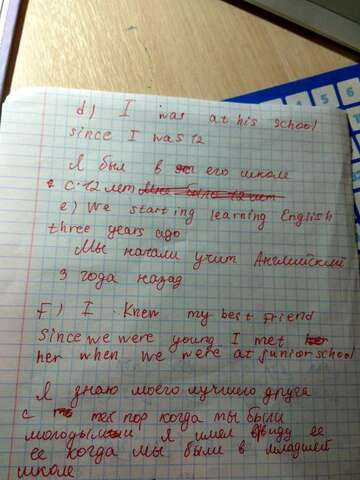 d) I was at his school
since I was 12
Я был в его школе
с 12 лет Мне было 12 лет
e) We starting learning English
three years ago
Мы начали учит Английский
3 года назад
F) I Knew my best Friend
since we were young I met
her when we were at junior school
Я знаю моего лучшего друга
с тех пор когда мы были
молодыми Я имел ввиду ее
ее когда мы были в младшей
школе
5 6